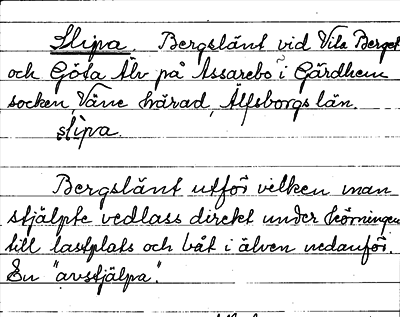 Slipa. Bergslänt vid Vita Berget
och Göta Älv på Assarebo i Gärdhem
socken Väne härad, Älfsborgs län.
slìpa.
Bergslänt utför vilken man
stjälpte vedlass direkt under körningen
till lastplats och båt i älven nedanför.
En "avstjälpa".